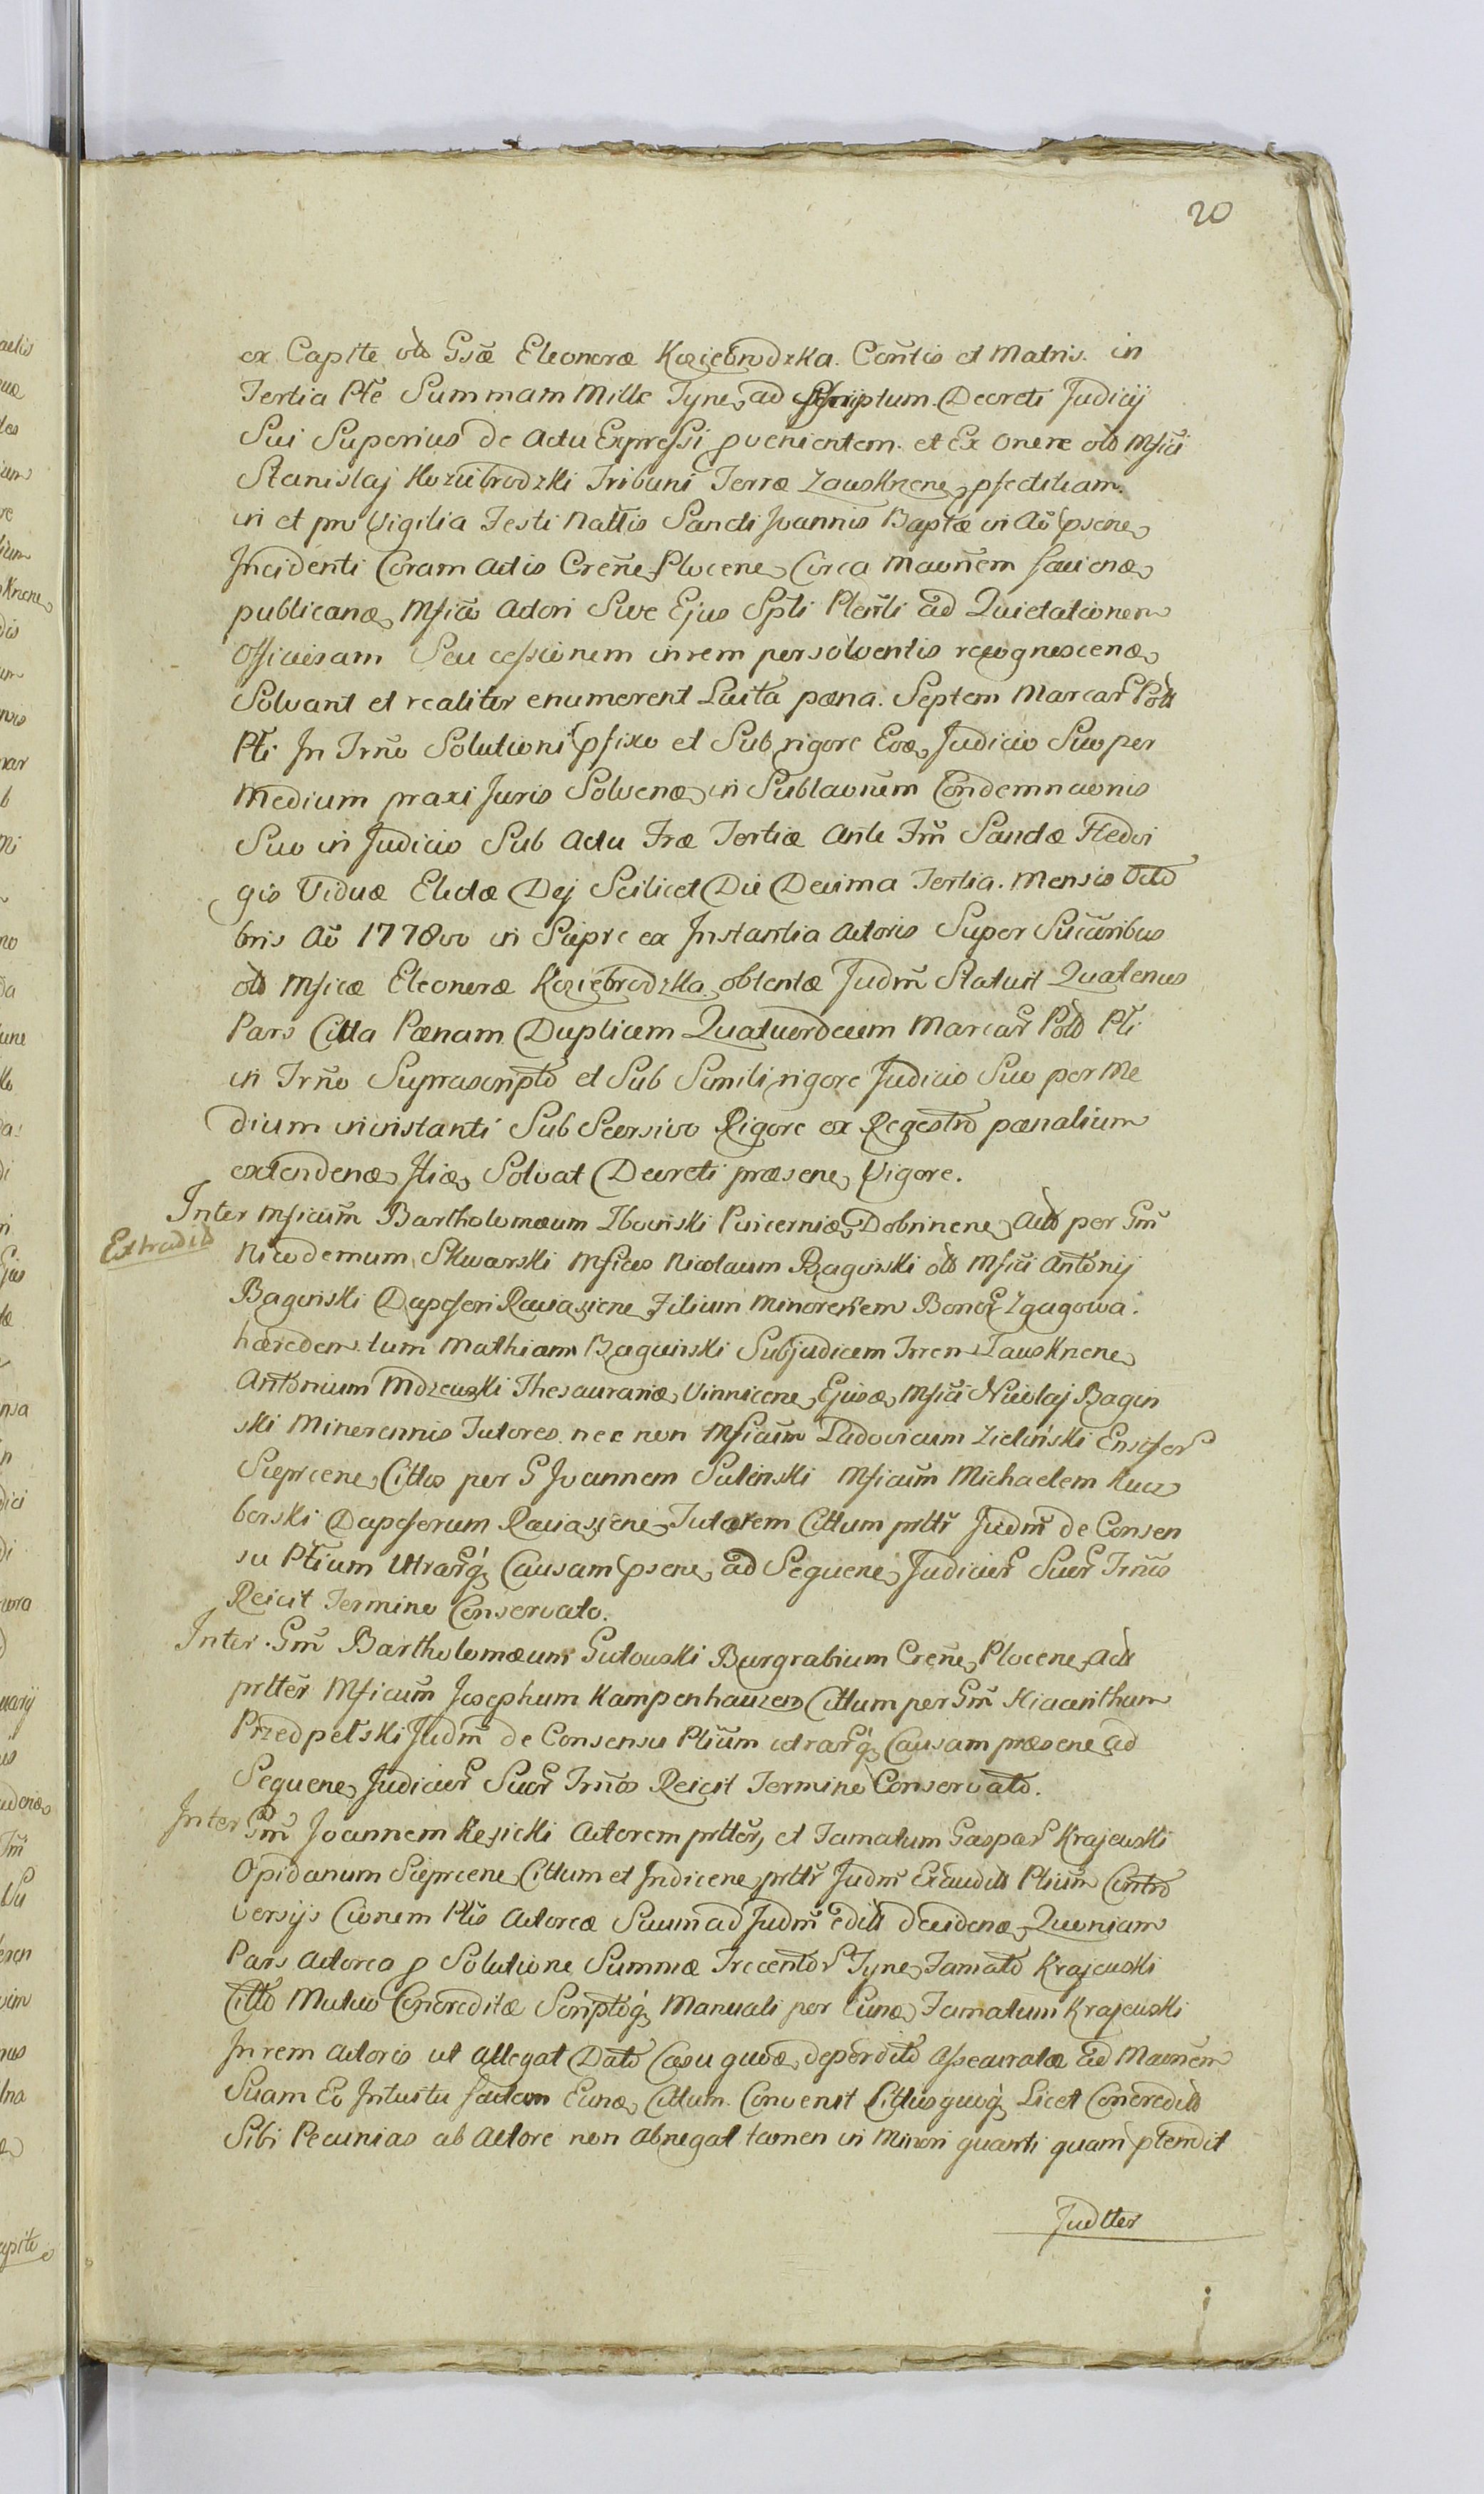 20
ex Capite olb Gsæ Eleonoræ Koziebrodzka. Contis et Matris. in
Tertia Pte Summam Mille Tyne, ad Decreti Judicij
Sui Superius de Actu Expressi pvenientem. et Ex onere olb Mfici
Stanislaj Koziebrodzki Tribuni Terræ Zauskrzene,
in et pro Vigilia Festi Nattis Sancti Joannis Baptæ in Ao psene,
Incidenti Coram Actis Crene, Plocene, Circa Maonem faciena,
publicana, Mfico Actori Sive Ejus Spli Plenti ad Quietationem
Officiosam Seu cessionem in rem persolventis recognoscena,
Solvant et realiter enumerent Luita pæna. Septem Marcar Poll
Pti In Trno Solutioni pfixo et Sub rigore Eoa, Judicio Suo per
Medium praxi Juris Solvena, in Sublaonem Condemnaonis
Suo in Judicio Sub Actu Fræ Tertiæ Ante Fm Sanctæ Hedvi
gis Viduæ Electæ Dej Scilicet Die Decima Tertia. Mensis Octo
bris Ao 1778vo in Sieprc ex Instantia Actoris Super Succoribus
olb Mficæ Eleonoræ Koziebrodzka obtentæ Judm Statuit Quatenus
Pars Citta Pænam Duplicem Quatuordecim Marcar Poll Pti
in Trno Suprascripto et Sub Simili rigore Judicio Suo per Me
dium in instanti Sub Scorsivo Rigore ex Regestro pænalium
extendena, Solvat Decreti præsene, Vigore.
Inter Mficum Bartholomæum Zboinski Pincerniæ, Dobrinene, Actb per Gm
Extradit
Nicodemum Skwarski Mficos Nicolaum Baginski olb Mfici Antonij
Baginski Dapiferi Raviasiene, Filium Minorenem Bonor Zgagowa.
hæredem tum Mathiam Baginski Subjudicem Trren Zauskrzene,
Antonium Mdzewski Thesauraria, Vinnicene, Ejusa, Mfici Nicolaj Bagin
ski Minorennis Tutores. nec non Mficum Ludovicum Zielinski Ensifer
Sieprcene, Cittos per G Joannem Sulinski Mficum Michaelem Kucz
borski Dapiferum Raviasiene, Tutorem Cittum prltr Judm de Consen
su Ptium Utrarq, Causam psene, ad Sequene, Judicior Suor Trnos
Reicit Termino Conservato.
Inter. Gm Bartholomæum Gutowski Burgrabium Crene, Plocene, Actb
prtter Mficum Josephum Kampenhauzen Cittum per Gm Hiacinthum
Przedpełski Judm de Consensu Ptium utrarq, Causam præsene, ad
Sequene, Judicior Suor Trnos Reicit Termino Conservato.
Inter Gm Joannem Kesicki Actorem prtter, et Famatum Gaspar Krajewski
Opidanum Sieprcene, Cittum et Indicene, prltr Judm Exauditb Ptium Contro
versijs Cionem Ptis Actoreæ Suum ad Judm editb decidena, Quoniam
Pars Actorea p Solutione Summæ Trecentor Tyne, Famato Krajewski
Citto Mutuo Concreditæ Scriptoq, Manuali per Euna, Famatum Krajewski
In rem Actoris ut allegat Dato Casu quoa, deperdito Assecuratæ ad Maonem
Suam Eo Intuitu factam Euna, Cittum. Convenit Cittusquoq, Licet Concreditb
Sibi Pecunias ab Actore non abnegat tamen in Minori quanti quam ptendit
Judtter